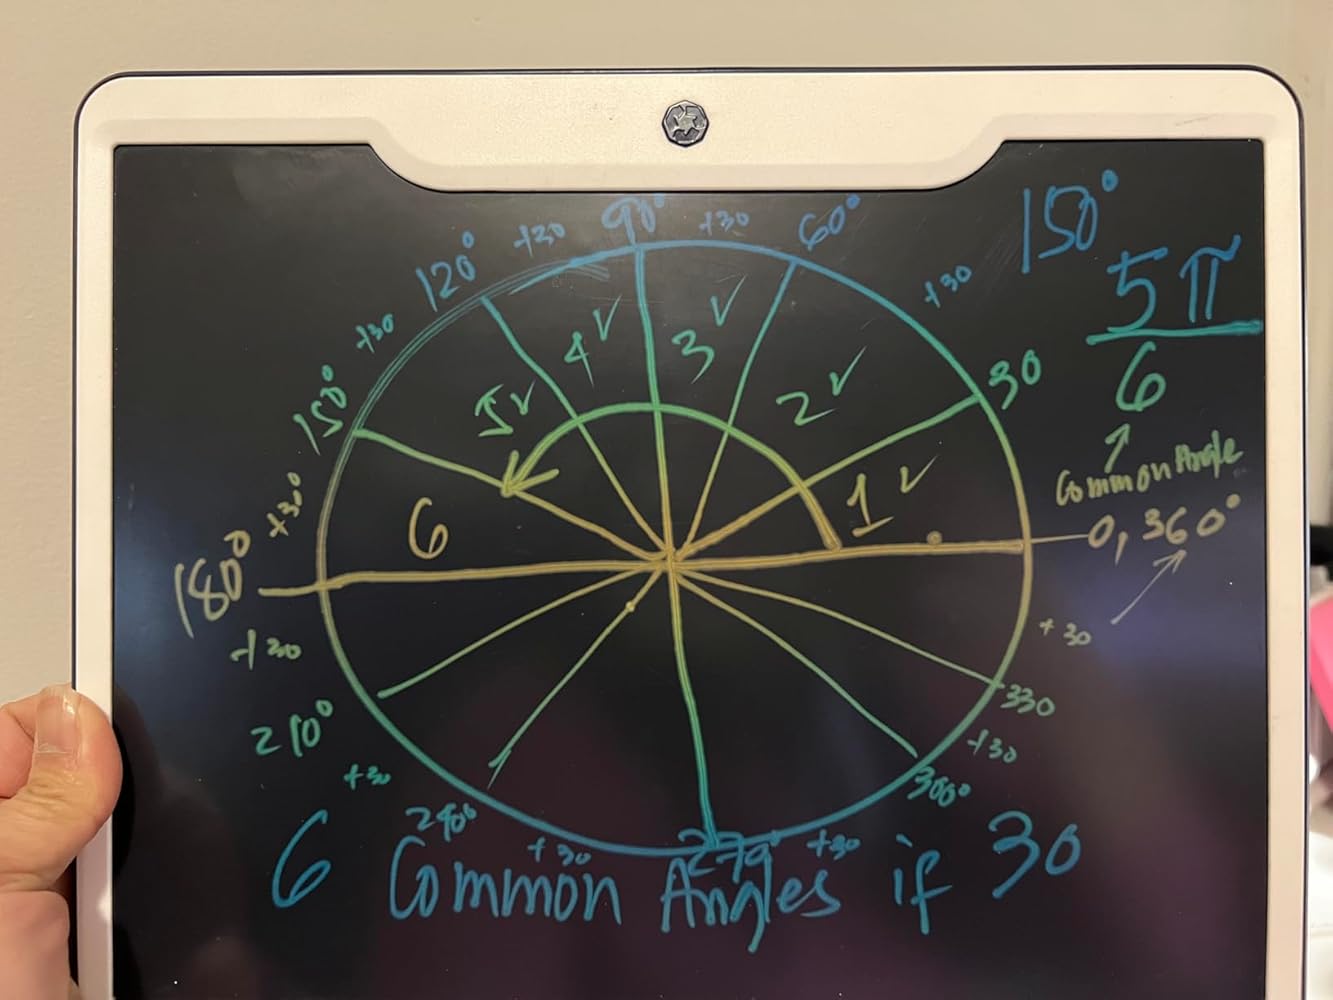 90°
+30
60°
+30
120°
+30
150°
5π
6
Common Angle
+30
150°
4✓
3✓
5✓
2✓
30
+30
6
1✓
0, 360°
180°
+30
+30
210°
330
+30
+30
240°
300°
+30
270°
+30
6 Common Angles if 30